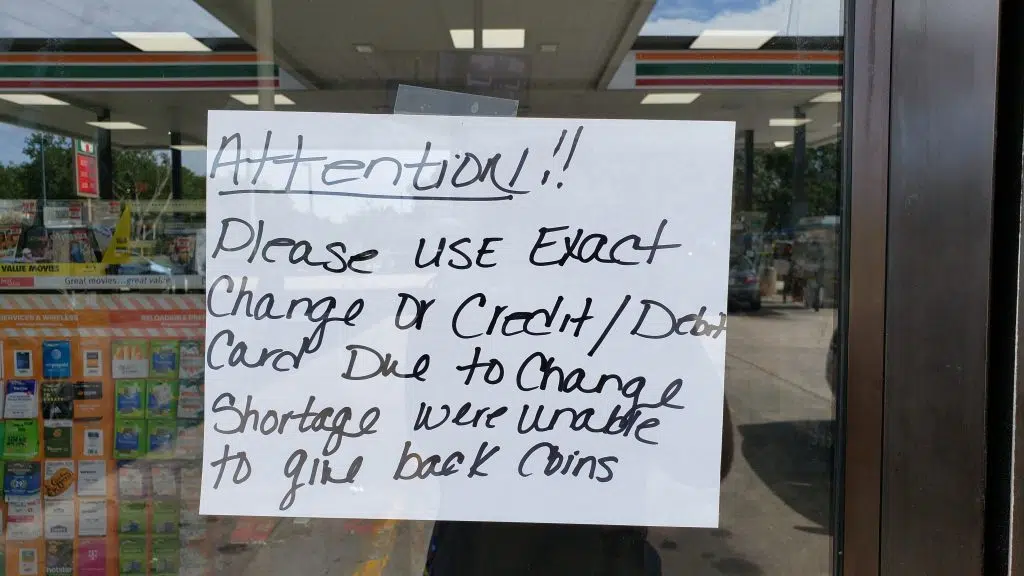 Attention!!!
Please USE Exact
Change Or Credit/Debit
Card Due to Change
Shortage were unable
to give back Coins
VALUE MOVIES
Great movies...great value
SERVICES & WIRELESS
RELOADABLE PRE